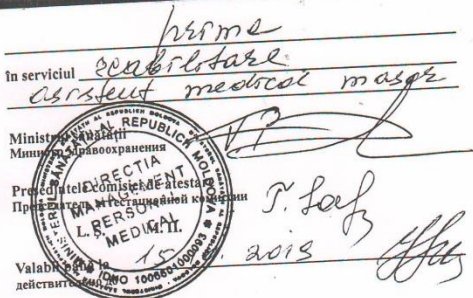 prima
în serviciul reabilitare
asistent medical masor
Ministrul Sănătății
Министр Здравоохранения
Președintele comisiei de atestare
Председатель аттестационной комиссии
L. Ș. М.П.
Valabil până la 15 2019
действительно до
MINISTERUL SĂNĂTĂȚII AL REPUBLICII MOLDOVA
DIRECȚIA
MANAGEMENT
PERSONAL
MEDICAL
IDNO 1006601000093